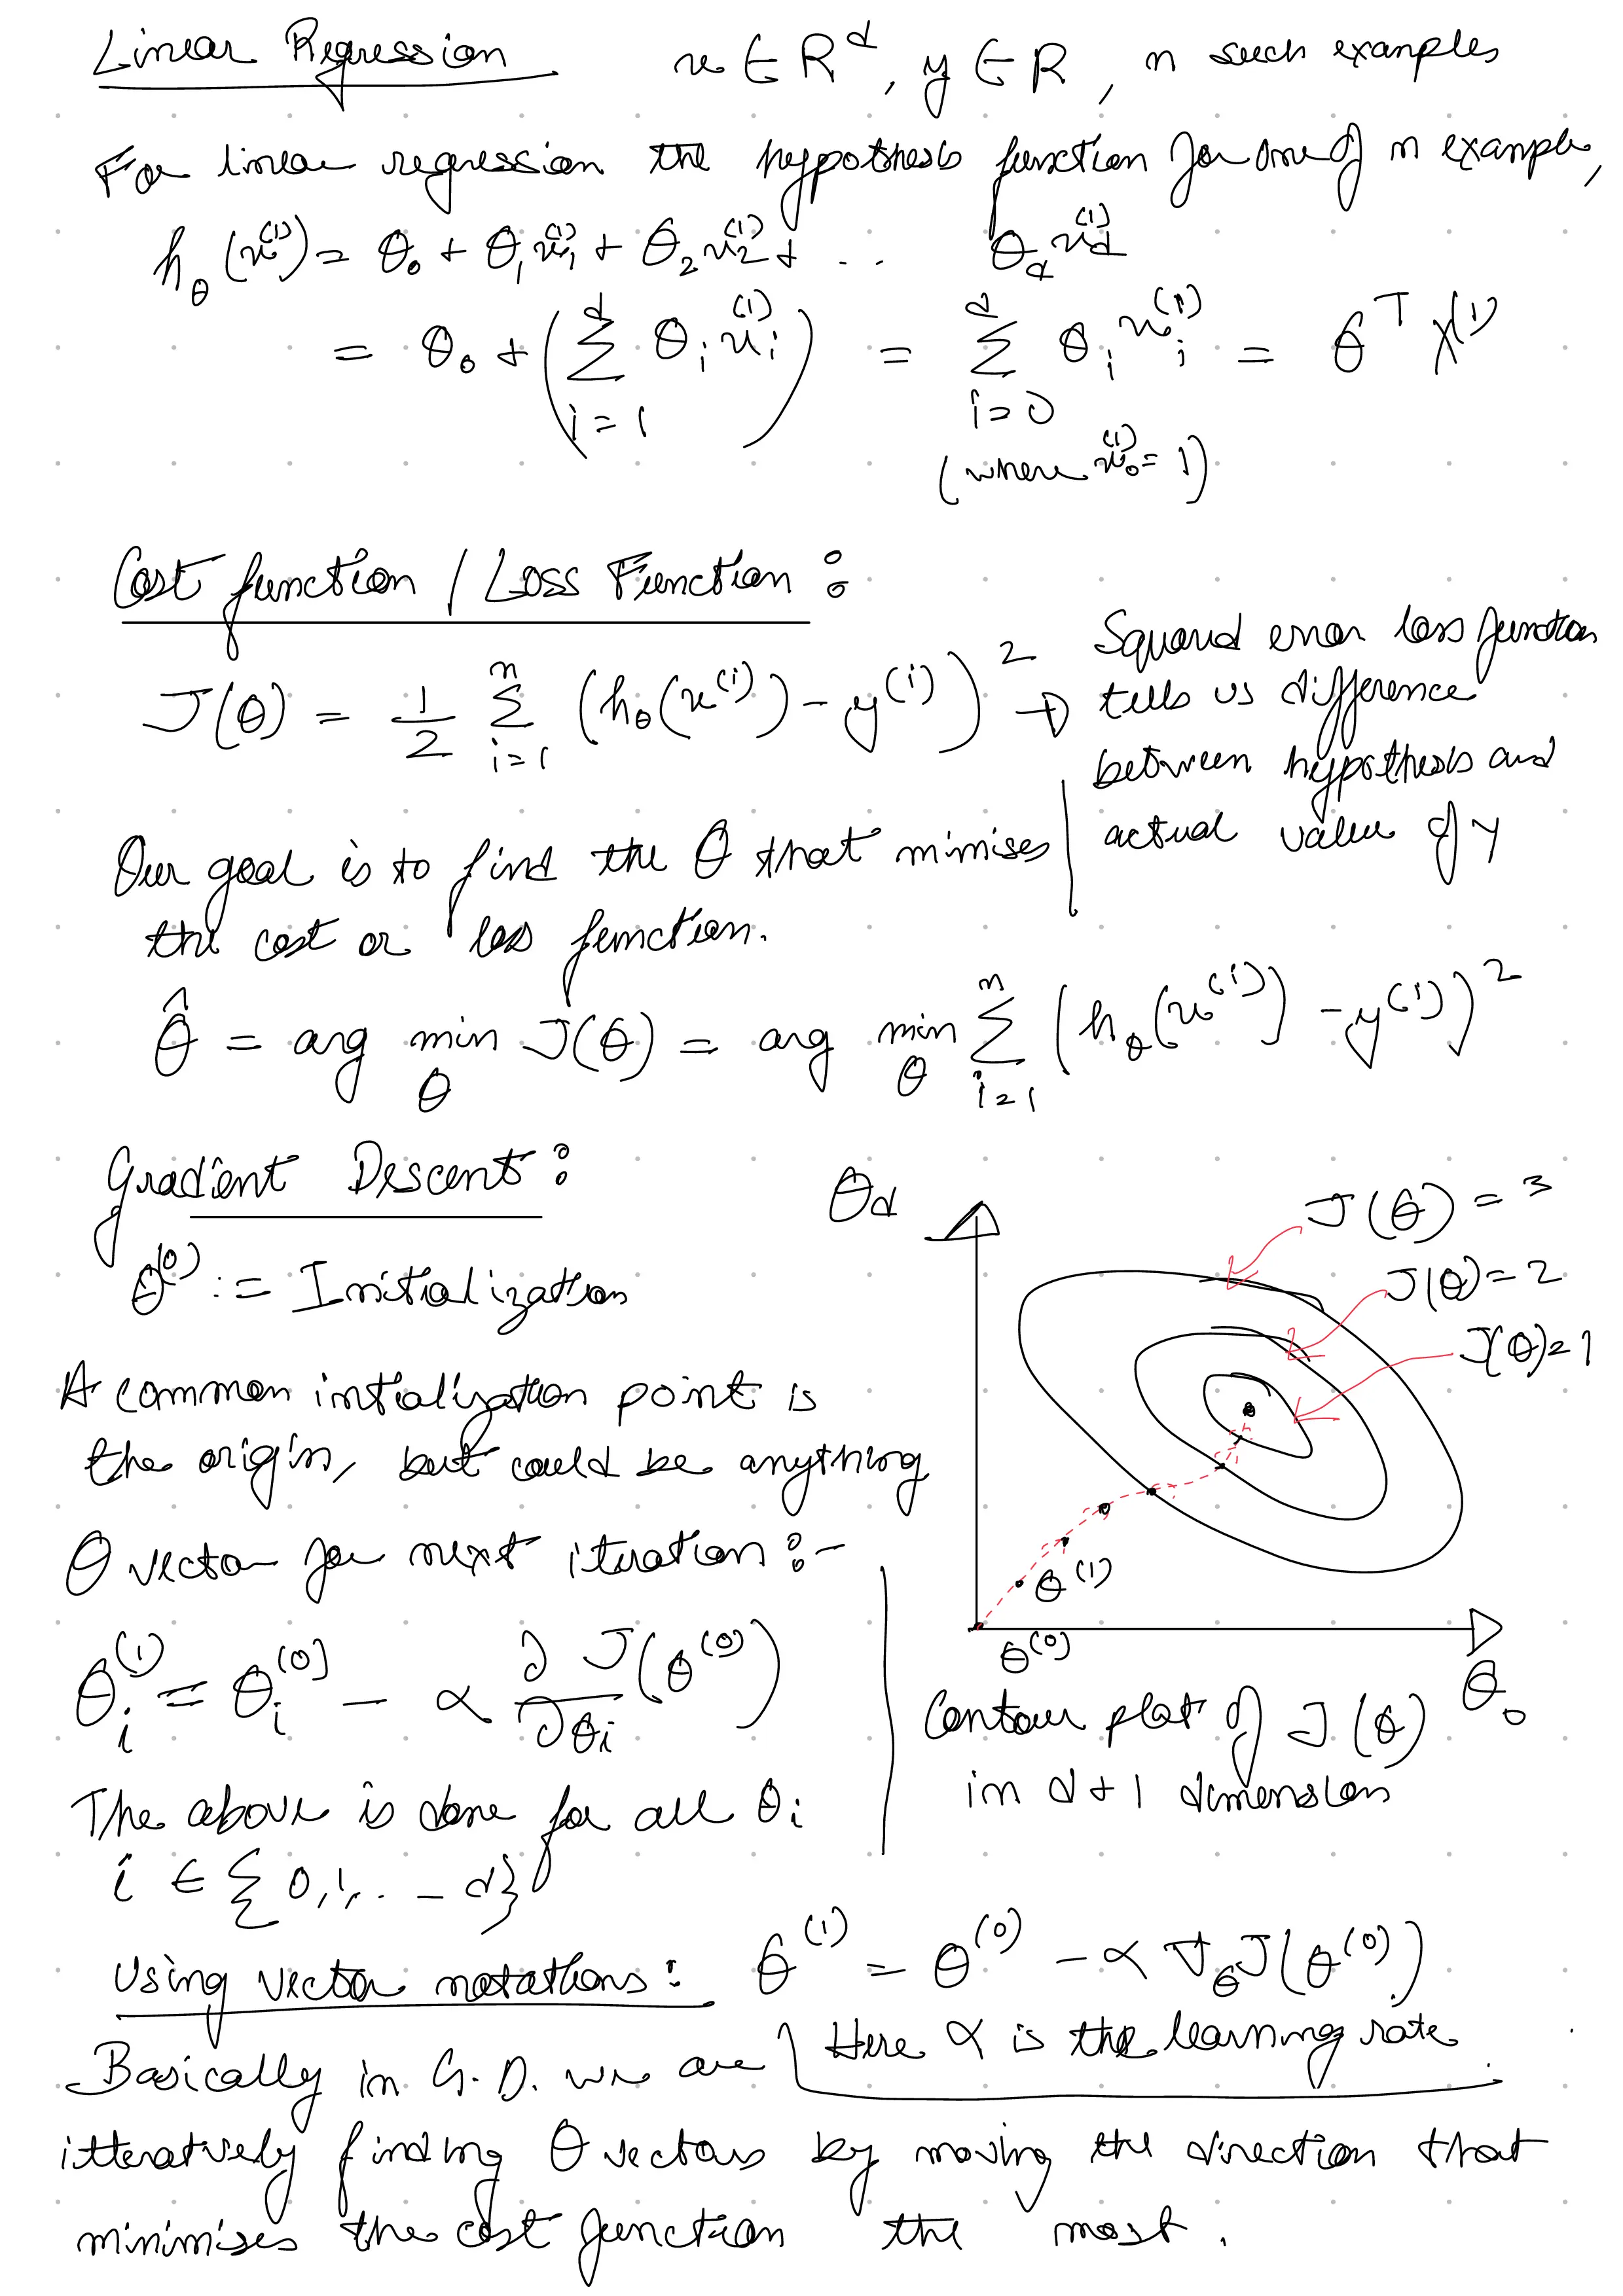 Linear Regression x ∈ R^d, y ∈ R, n such examples
For linear regression the hypothesis function for one of n example,
h_θ (x^(1)) = θ_0 + θ_1 x_1^(1) + θ_2 x_2^(1) + .. θ_d x_d^(1)
= θ_0 + (∑_{i=1}^{d} θ_i x_i^(1)) = ∑_{i=0}^{d} θ_i x_i^(1) = θ^T X^(1)
(where x_0^(1) = 1)
Cost function / Loss Function :
J(θ) = 1/2 ∑_{i=1}^{n} (h_θ(x^(i)) - y^(i))^2 →
Squared error loss function
tells us difference
between hypothesis and
actual value of y
Our goal is to find the θ that minimises
the cost or loss function.
θ̂ = arg min_θ J(θ) = arg min_θ ∑_{i=1}^{n} (h_θ(x^(i)) - y^(i))^2
Gradient Descent :
θ^(0) := Initialization
A common intialization point is
the origin, but could be anything
θ vector for next iteration :-
θ_i^(1) = θ_i^(0) - α ∂/∂θ_i J(θ^(0))
The above is done for all θ_i
i ∈ {0,1,. _ d}
θ_d
J(θ) = 3
J(θ) = 2
J(θ) = 1
θ^(1)
θ^(0)
θ_0
Contour plot of J(θ)
in d+1 dimension
Using vector notations : θ^(1) = θ^(0) - α ∇_θ J(θ^(0))
Here α is the learning rate.
Basically in G.D. we are
itteratively finding θ vectors by moving the direction that
minimises the cost function the most.